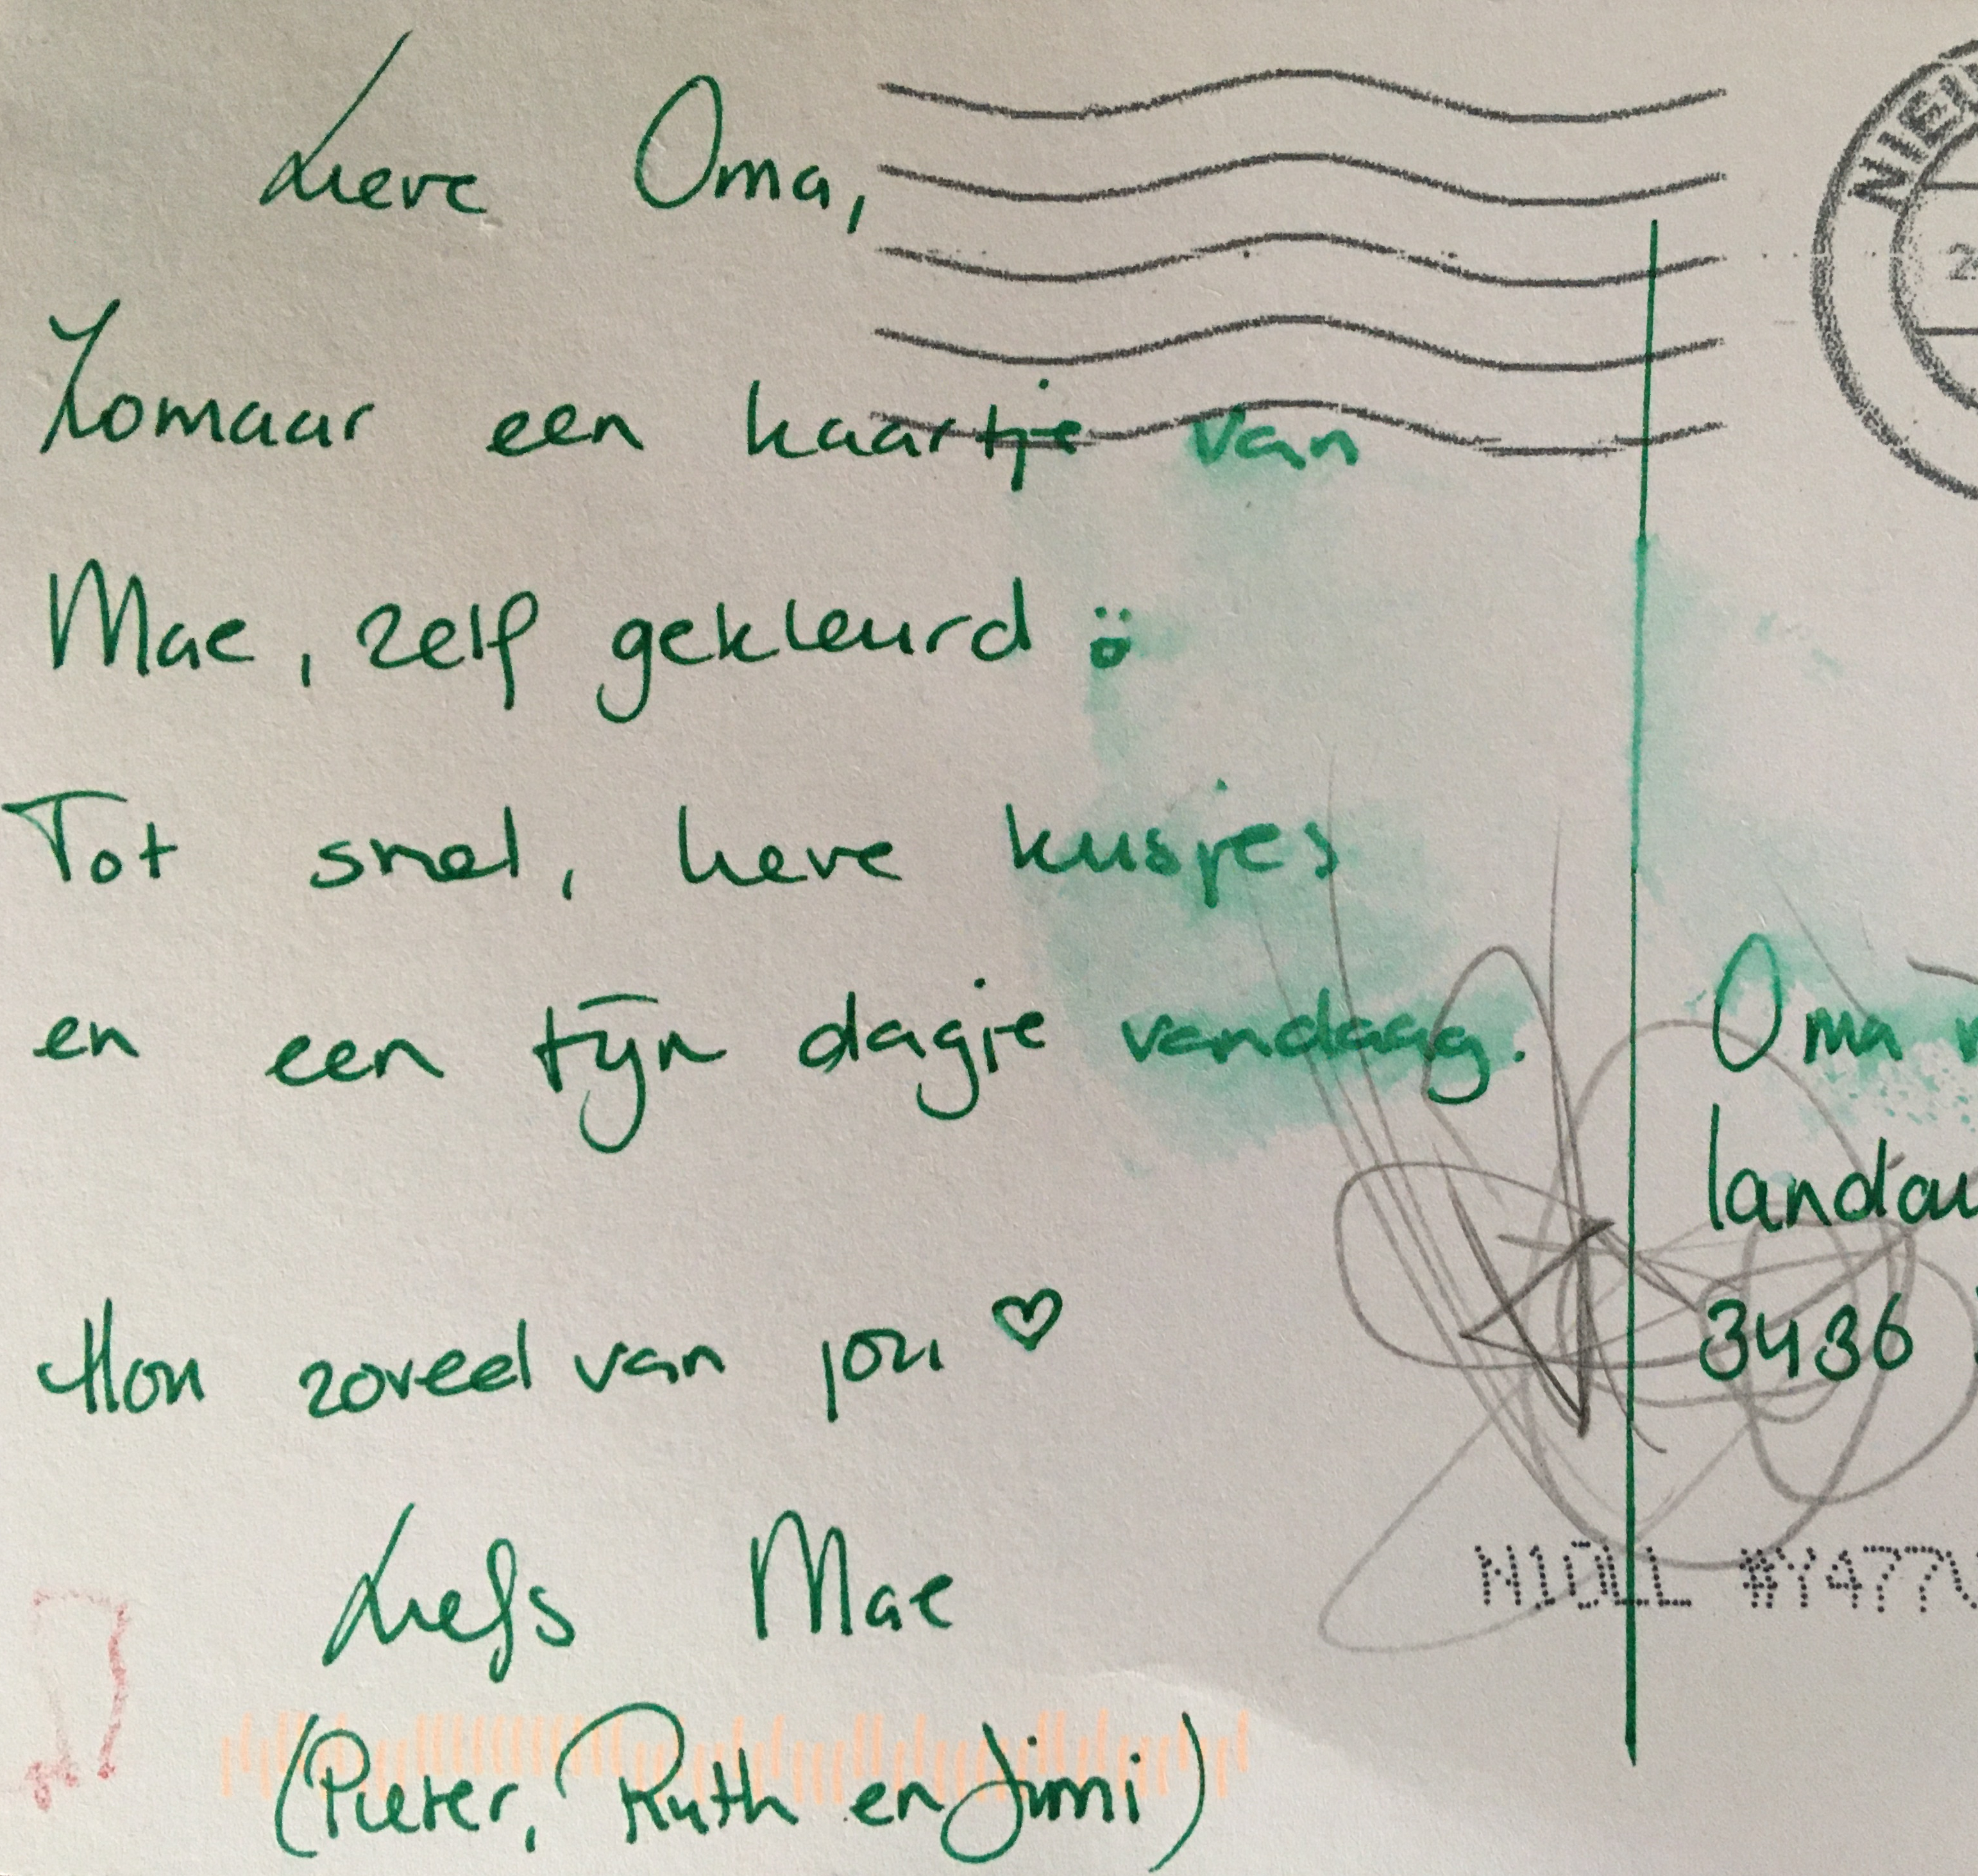 Lieve Oma,
Zomaar een kaartje van
Mae, zelf gekleurd
Tot snel, lieve kusjes
en een fijn dagje vandaag.
Hou zoveel van jou ♡
Liefs Mae
(Pieter, Ruth en Jimi)
Oma
3436
N10LL #Y477